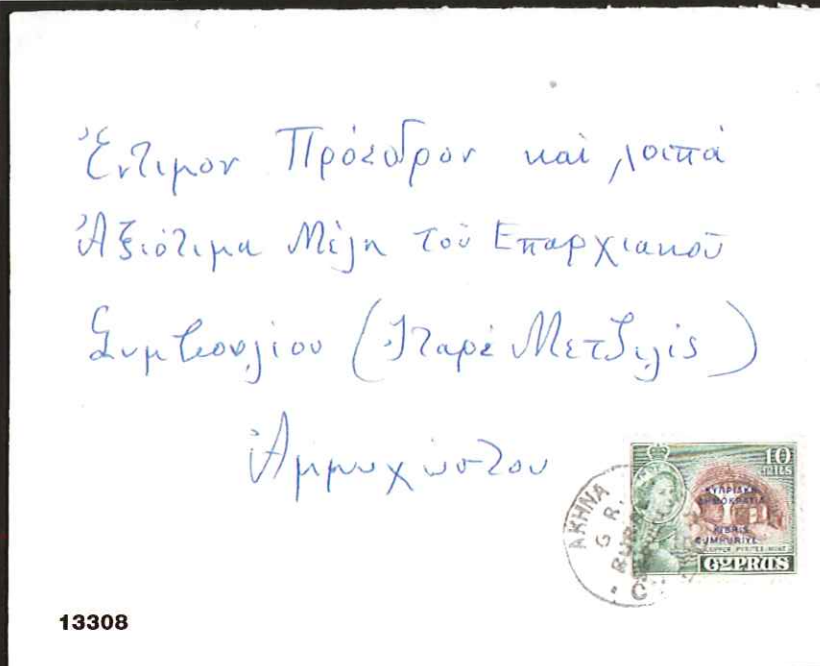 Ἔντιμον Πρόεδρον καὶ λοιπά
Ἀξιότιμα Μέλη τοῦ Ἐπαρχιακοῦ
Συμβουλίου (Ἰταρέ Μετζιλίς)
Ἀμμοχώστου
10
mils
ΚΥΠΡΙΑΚΗ
ΔΗΜΟΚΡΑΤΙΑ
KIBRIS
CUMHURIYETI
COPPER PYRITES MINE
CYPRUS
AKHNA
G. R.
RURAL
13308